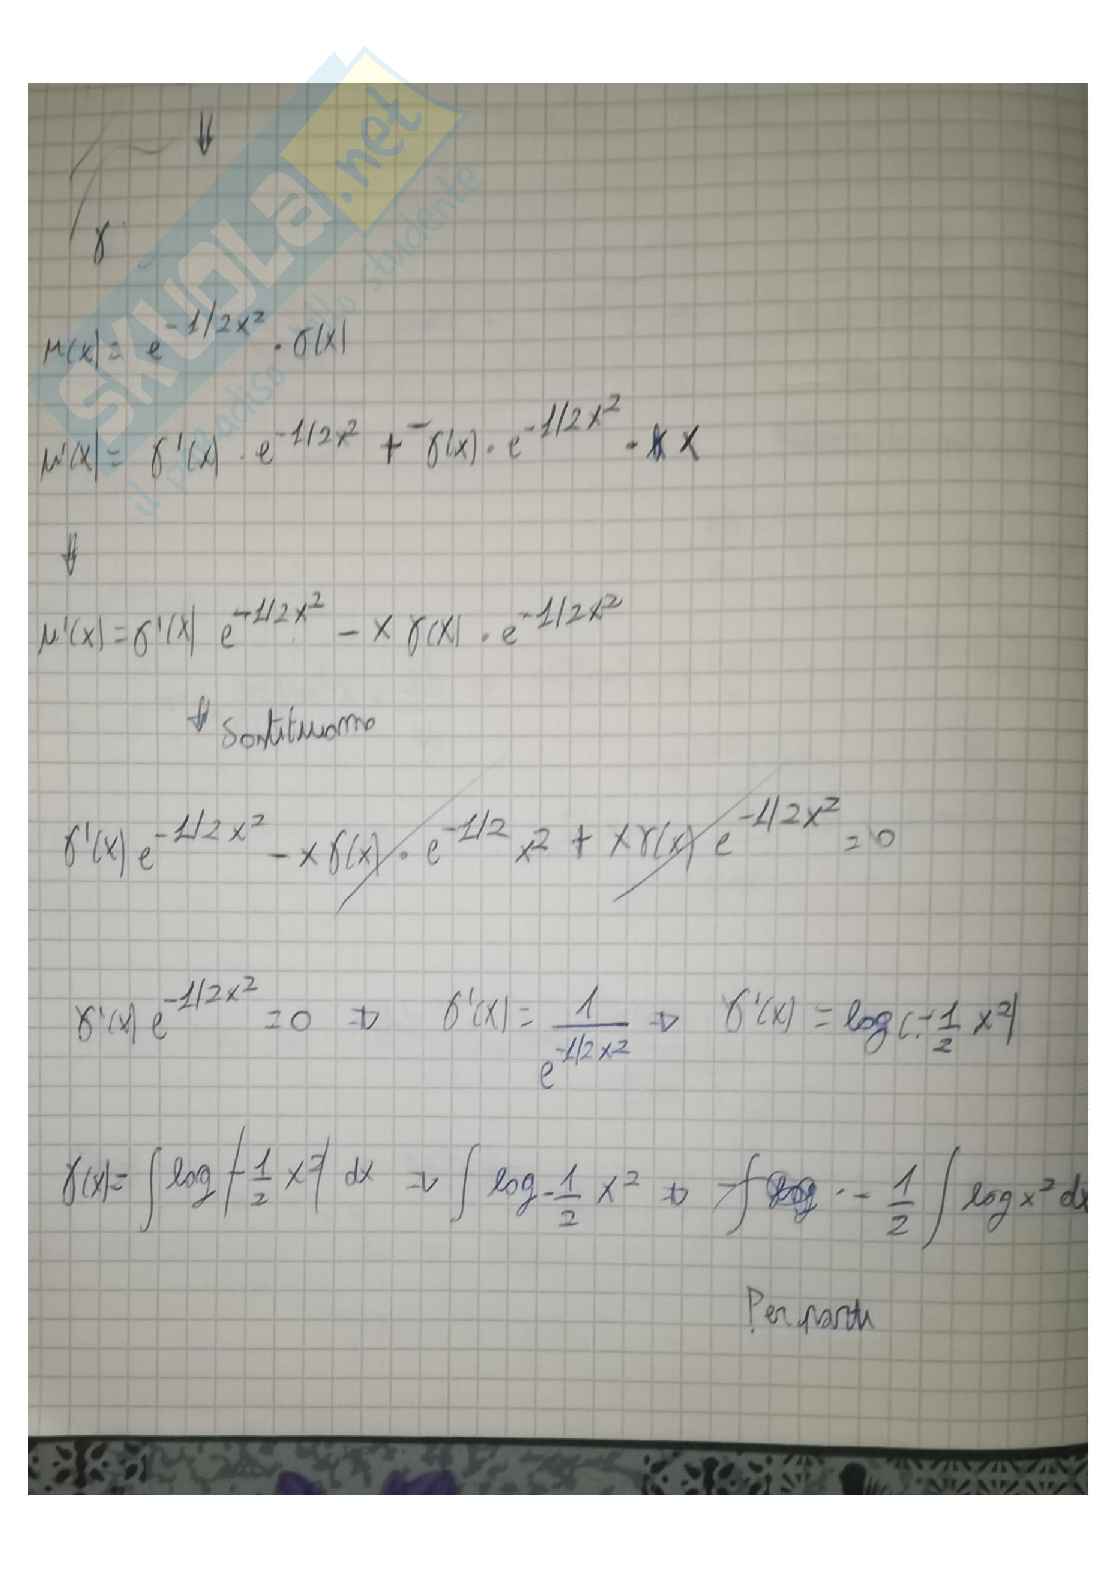 ⇓
γ
μ(x) = e^{-1/2x²} · σ(x)
μ'(x) = γ'(x) · e^{-1/2x²} + -γ(x) · e^{-1/2x²} · x
⇓
μ'(x) = γ'(x) e^{-1/2x²} - x γ(x) · e^{-1/2x²}
⇓ Sostituiamo
γ'(x) e^{-1/2x²} - x γ(x) · e^{-1/2} x² + x γ(x) e^{-1/2x²} = 0
γ'(x) e^{-1/2x²} = 0 ⇒ γ'(x) = 1/e^{-1/2x²} ⇒ γ'(x) = log(-1/2 x²)
γ(x) = ∫ log(-1/2 x²) dx ⇒ ∫ log -1/2 x² ⇒ - 1/2 ∫ log x² dx
Per parti
SKUOLA.net
il paradiso dello studente